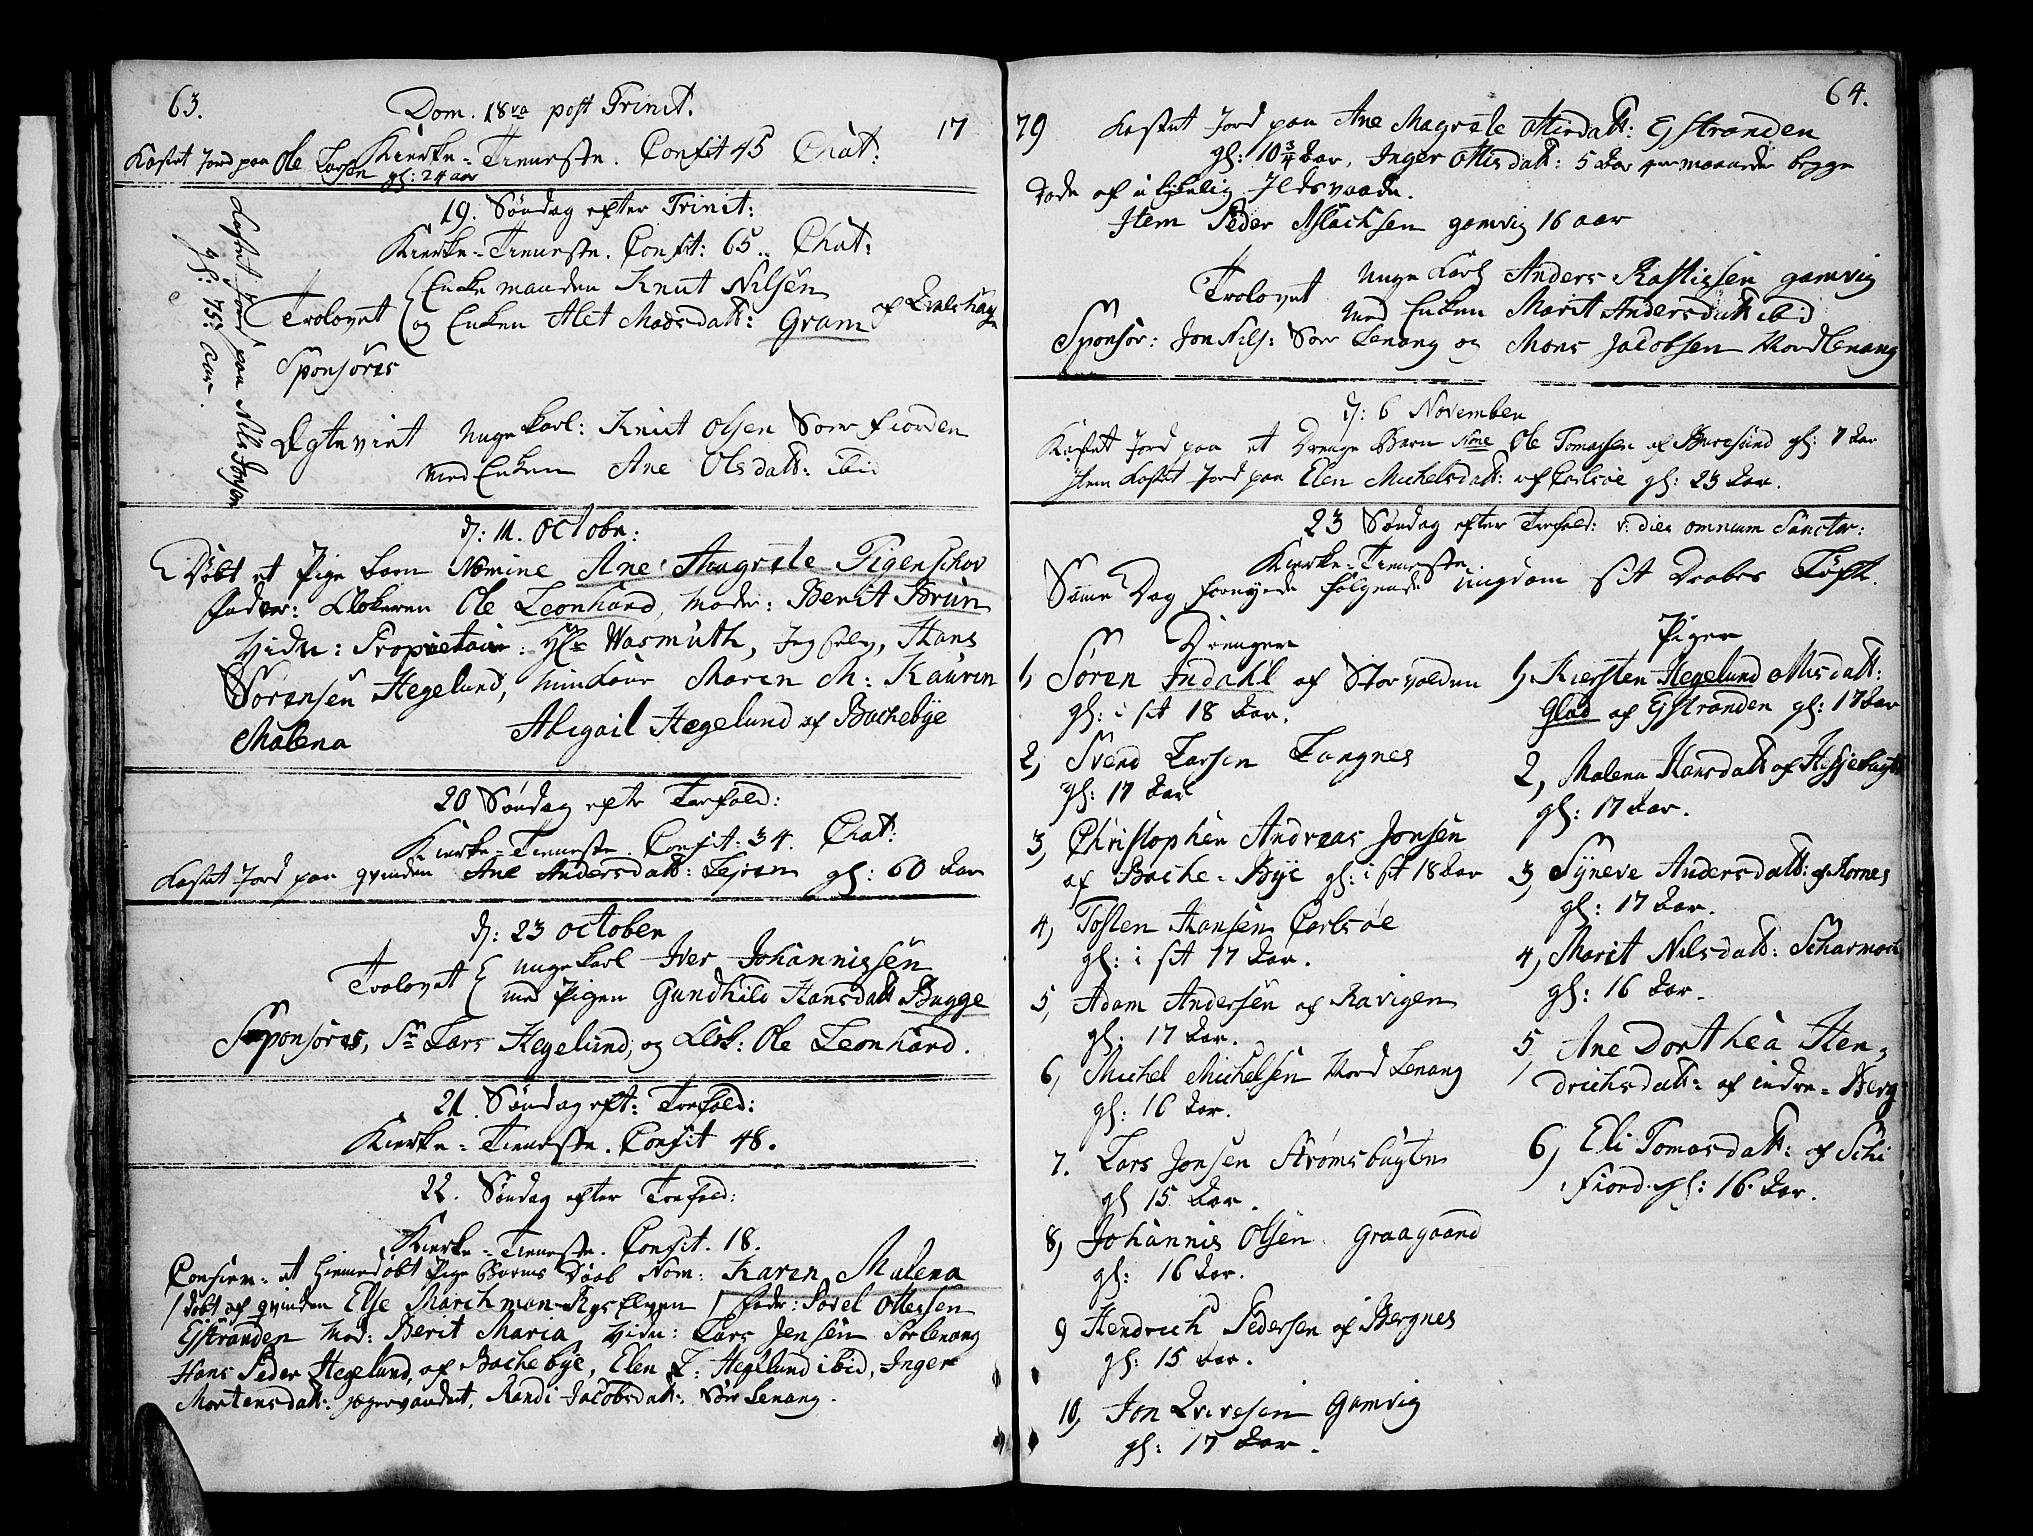 63.
Dom. 18va post Trinit.
17
Kierke-Tieneste. Confit 45 Chat:
Kastet Jord paa Ole Larsen gl: 24 aar
19. Søndag efter Trinit:
Kierke-Tieneste. Confit: 65.. Chat:
Kastet Jord paa Nils Jonsen
gl: 75: aar.
Enke manden Knut Nilsen
Trolovet og Enken Alet Madsdatt: Gram af
Sponsores
Ægteviet unge karl: Knut Olsen Sørfiorden
med Enken Ane Olsdatt: ibid
d: 11. Octobr:
Døbt et Pige barn Nomine Ane Magrete Figenschov
fader: Klokeren Ole Leonhard, moder: Berit Brun
vidn: Proprietair: Hr Wasmuth, Jeg selv, Hans
Sørensen Hegelund, min kone Maren M: Kaurin
Malena Abigail Hegelund af Bachebye
20 Søndag eftr Trefold:
Kierke-Tieneste. Confit: 34. Chat:
Kastet Jord paa qvinden Ane Andersdatt: gl: 60 Aar
d: 23 October
Trolovet unge karl Iver Johannissen
med Pigen Gundhild Hansdatt Bugge
Sponsores, Sr Lars Hegelund, og Klok: Ole Leonhard.
21. Søndag eft: Trefold:
Kierke-Tieneste. Confit 48.
22. Søndag efter Trefold:
Kierke-Tieneste. Confit. 18.
Confirm: et hiemedøbt Pige Barns Daab Nom: Karen Malena
/døbt af qvinden Else Marchman / fadr: Povel Ottessen
Ejstranden Mod: Berit Maria vidn: Lars Jensen Sørlenang
Hans Peder Hegelund, af Bachebye, Elen L: Hegelund ibid, Inger
Mortensdatt: Jægervandet, Randi Jacobsdatt: Sør Lenang.
64.
79
Kastet Jord paa Ane Magrete Ottisdatt: Ejstranden
gl: 10 3/4 Aar, Inger Ottisdatt: 5 Aar 4 maaneder begge
døde af ulykelig Ildsvaade.
Item Peder Aslachsen gamvig 16 aar
Trolovet unge karl Anders Rastissen gamvig
med Enken Marit Andersdatt ibid
Sponsor: Jon Nils: Sør Lenang og Mons Jacobsen Nordlenang
d: 6 November
Kastet Jord paa et Drenge Barn None Ole Tomassen af gl: 7 Aar
Item kastet Jord paa Elen Michelsdatt: af Carlsøe gl: 23 Aar.
23 Søndag efter Trefold: v: dies omnium Sanctor:
Kierke-Tieneste.
Samme Dag fornyede følgende ungdom sit Daabes Løfte.
Drenger
1, Søren Indahl af Storvolden
gl: i sit 18 Aar.
2, Svend Larsen Langnes
gl: 17 Aar
3, Christopher Andreas Jonsen
af Bache-Bye gl: i sit 18 Aar
4, Tosten Hansen Carlsøe
gl: i sit 17 Aar.
5, Adam Andersen af Ravigen
gl: 17 Aar.
6, Michel Michelsen Nord Lenang
gl: 16 Aar.
7. Lars Jonsen Strømsbugten
gl 15 Aar.
8, Johannis Olsen. Graagaard
gl: 16 Aar.
9 Hendrich Pedersen af Bergnes
gl: 15 Aar.
10, Jon Gamvig
gl: 17 Aar.
Piger
1, Kiersten Hegelund Nilsdatt:
Glad af Ejstranden gl: 17 Aar
2, Malena Hansdatt af
gl: 17 Aar.
3, Syneve Andersdatt: af Kornes
gl: 17 Aar.
4, Marit Nilsdatt: Scharmoch
gl: 16 Aar.
5, Ane Dorthea Hen-
drichsdatt: af indre-Berg
6, Eli Tomasdatt: af Schi
fiord. gl: 16. Aar.